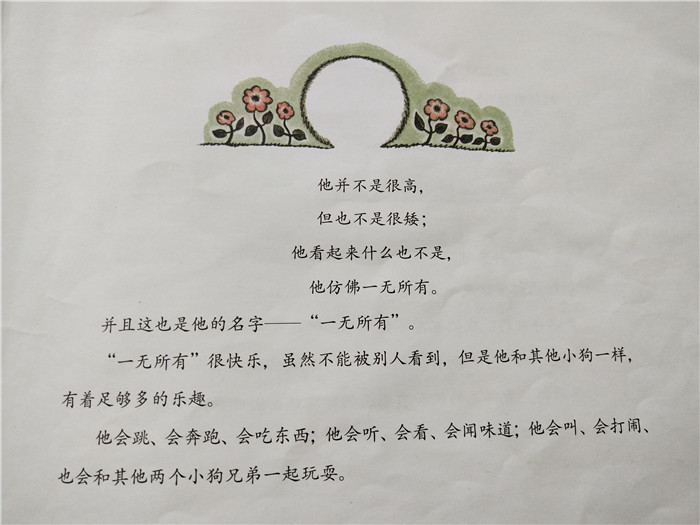 他并不是很高，
但也不是很矮；
他看起来什么也不是，
他仿佛一无所有。
并且这也是他的名字——“一无所有”。
“一无所有”很快乐，虽然不能被别人看到，但是他和其他小狗一样，
有着足够多的乐趣。
他会跳、会奔跑、会吃东西；他会听、会看、会闻味道；他会叫、会打闹、
也会和其他两个小狗兄弟一起玩耍。